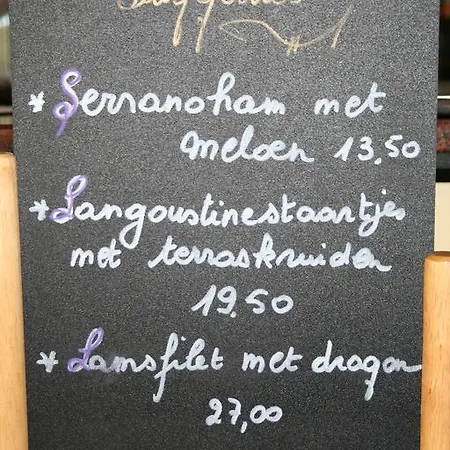 * Serranoham met
meloen 13,50
* Langoustinestaartjes
met terraskruiden
19.50
* Lamsfilet met dragon
27,00